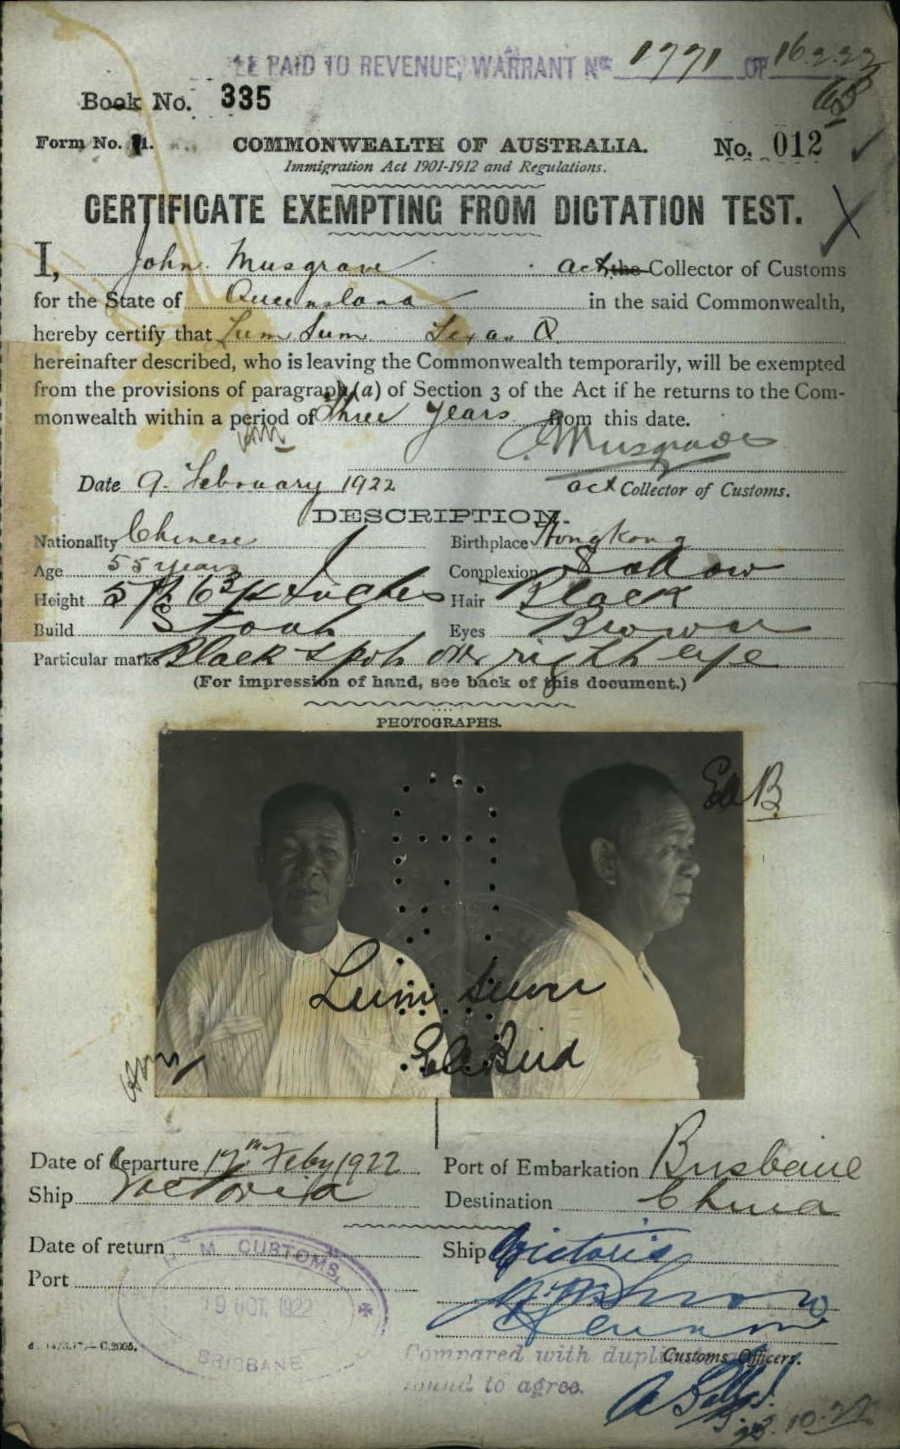 £1 PAID TO REVENUE, WARRANT No. 1771 OF 16.2.22
Book No. 335
Form No. 21.
COMMONWEALTH OF AUSTRALIA.
No. 012
Immigration Act 1901-1912 and Regulations.
CERTIFICATE EXEMPTING FROM DICTATION TEST.
I, John Musgrave act the Collector of Customs
for the State of Queensland in the said Commonwealth,
hereby certify that Lum Sum Texas Q
hereinafter described, who is leaving the Commonwealth temporarily, will be exempted
from the provisions of paragraph (a) of Section 3 of the Act if he returns to the Com-
monwealth within a period of three years from this date.
J. Musgrave
Date 9. February 1922
act Collector of Customs.
DESCRIPTION.
Nationality Chinese
Birthplace Hongkong
Age 55 years
Complexion Sallow
Height 5 ft 6 3/4 Inches
Hair Black
Build Stout
Eyes Brown
Particular marks Black spot over right eye
(For impression of hand, see back of this document.)
PHOTOGRAPHS.
EAB
Lum Sum
E A Bird
Date of departure 17th Feby 1922
Port of Embarkation Brisbane
Ship Victoria
Destination China
Date of return
Ship Victoria
Port
H. M. CUSTOMS,
19 OCT. 1922
BRISBANE
C.2005.
Customs Officers.
Compared with duplicate and
found to agree.
10.22